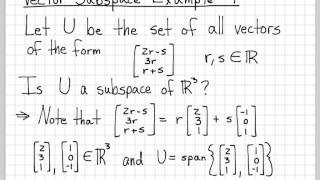 Vector Subspace Example 1
Let U be the set of all vectors
of the form [2r-s 3r r+s] r, s ∈ ℝ
Is U a subspace of ℝ³?
⇒ Note that [2r-s 3r r+s] = r[2 3 1] + s[-1 0 1]
[2 3 1], [1 0 -1] ∈ ℝ³ and U = span{[2 3 1], [1 0 -1]}